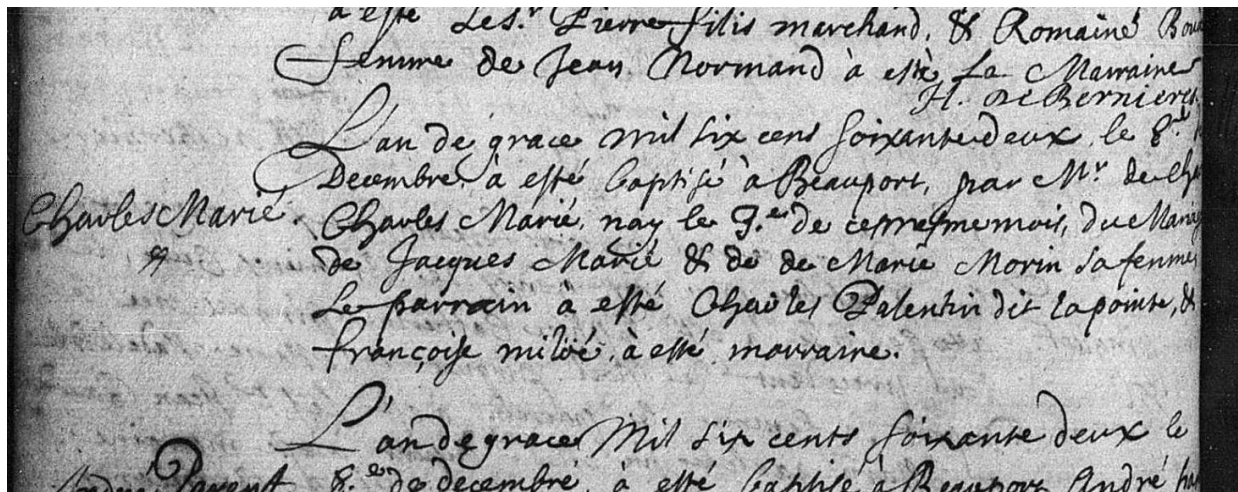 a esté Le S.r Pierre filis marchand, & Romaine
femme de Jean Normand à esté La Marraine
H. de Bernieres
L'an de grace mil six cens soixante deux le 8.e
Decembre à esté baptisé à Beauport, par M.r de
Charles Marié.
Charles Marié, nay le 3.e de ce mesme mois, du Mariag
de Jacques Marié & de de Marie Morin sa femme
Le parrain à esté Charles Palentin dit la pointe, &
françoise miloé à esté marraine.
L'an de grace Mil six cents soixante deux le
Parent 8.e de decembre à esté baptisé à Beauport André